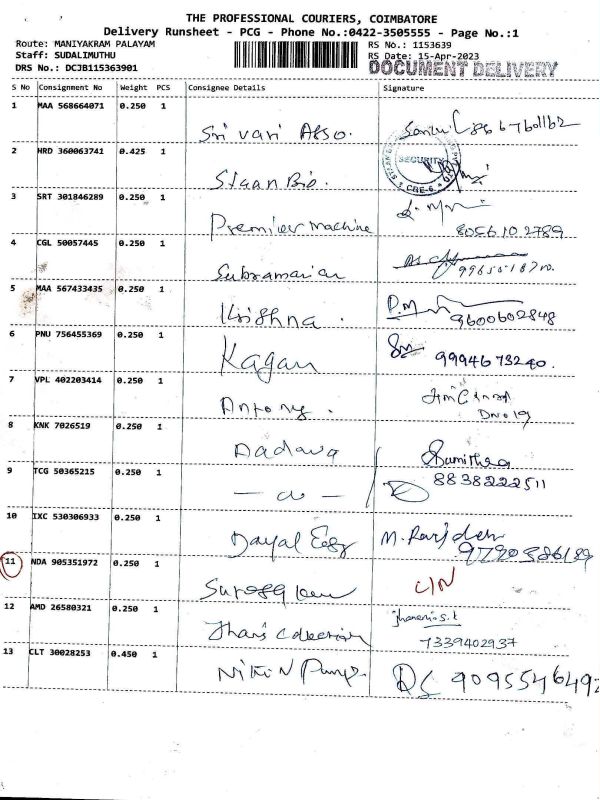 THE PROFESSIONAL COURIERS, COIMBATORE
Delivery Runsheet - PCG - Phone No.:0422-3505555 - Page No.:1
Route: MANIYAKRAM PALAYAM RS No.: 1153639
Staff: SUDALIMUTHU RS Date: 15-Apr-2023
DRS No.: DCJB115363901 DOCUMENT DELIVERY
S No Consignment No Weight PCS Consignee Details Signature
1 MAA 568664071 0.250 1
Sri vari Asso.
2 HRD 360063741 0.425 1 SECURITY
Staan Bio. CBE-6
3 SRT 301846289 0.250 1
Premier machine 8056102789
4 CGL 50057445 0.250 1
Subramanian
5 MAA 567433435 0.250 1
Krishna. 9600602848
6 PNU 756455369 0.250 1
Kagan 9994673240.
7 VPL 402203414 0.250 1
Antony. DNO 19
8 KNK 7026519 0.250 1
Dadava Sumithra
9 TCG 50365215 0.250 1 8838222511
10 IXC 530306933 0.250 1
Dayal
11 NDA 905351972 0.250 1
C/N
12 AMD 26580321 0.250 1
Jhans Collection 7339402937
13 CLT 30028253 0.450 1
Nitin Pumps